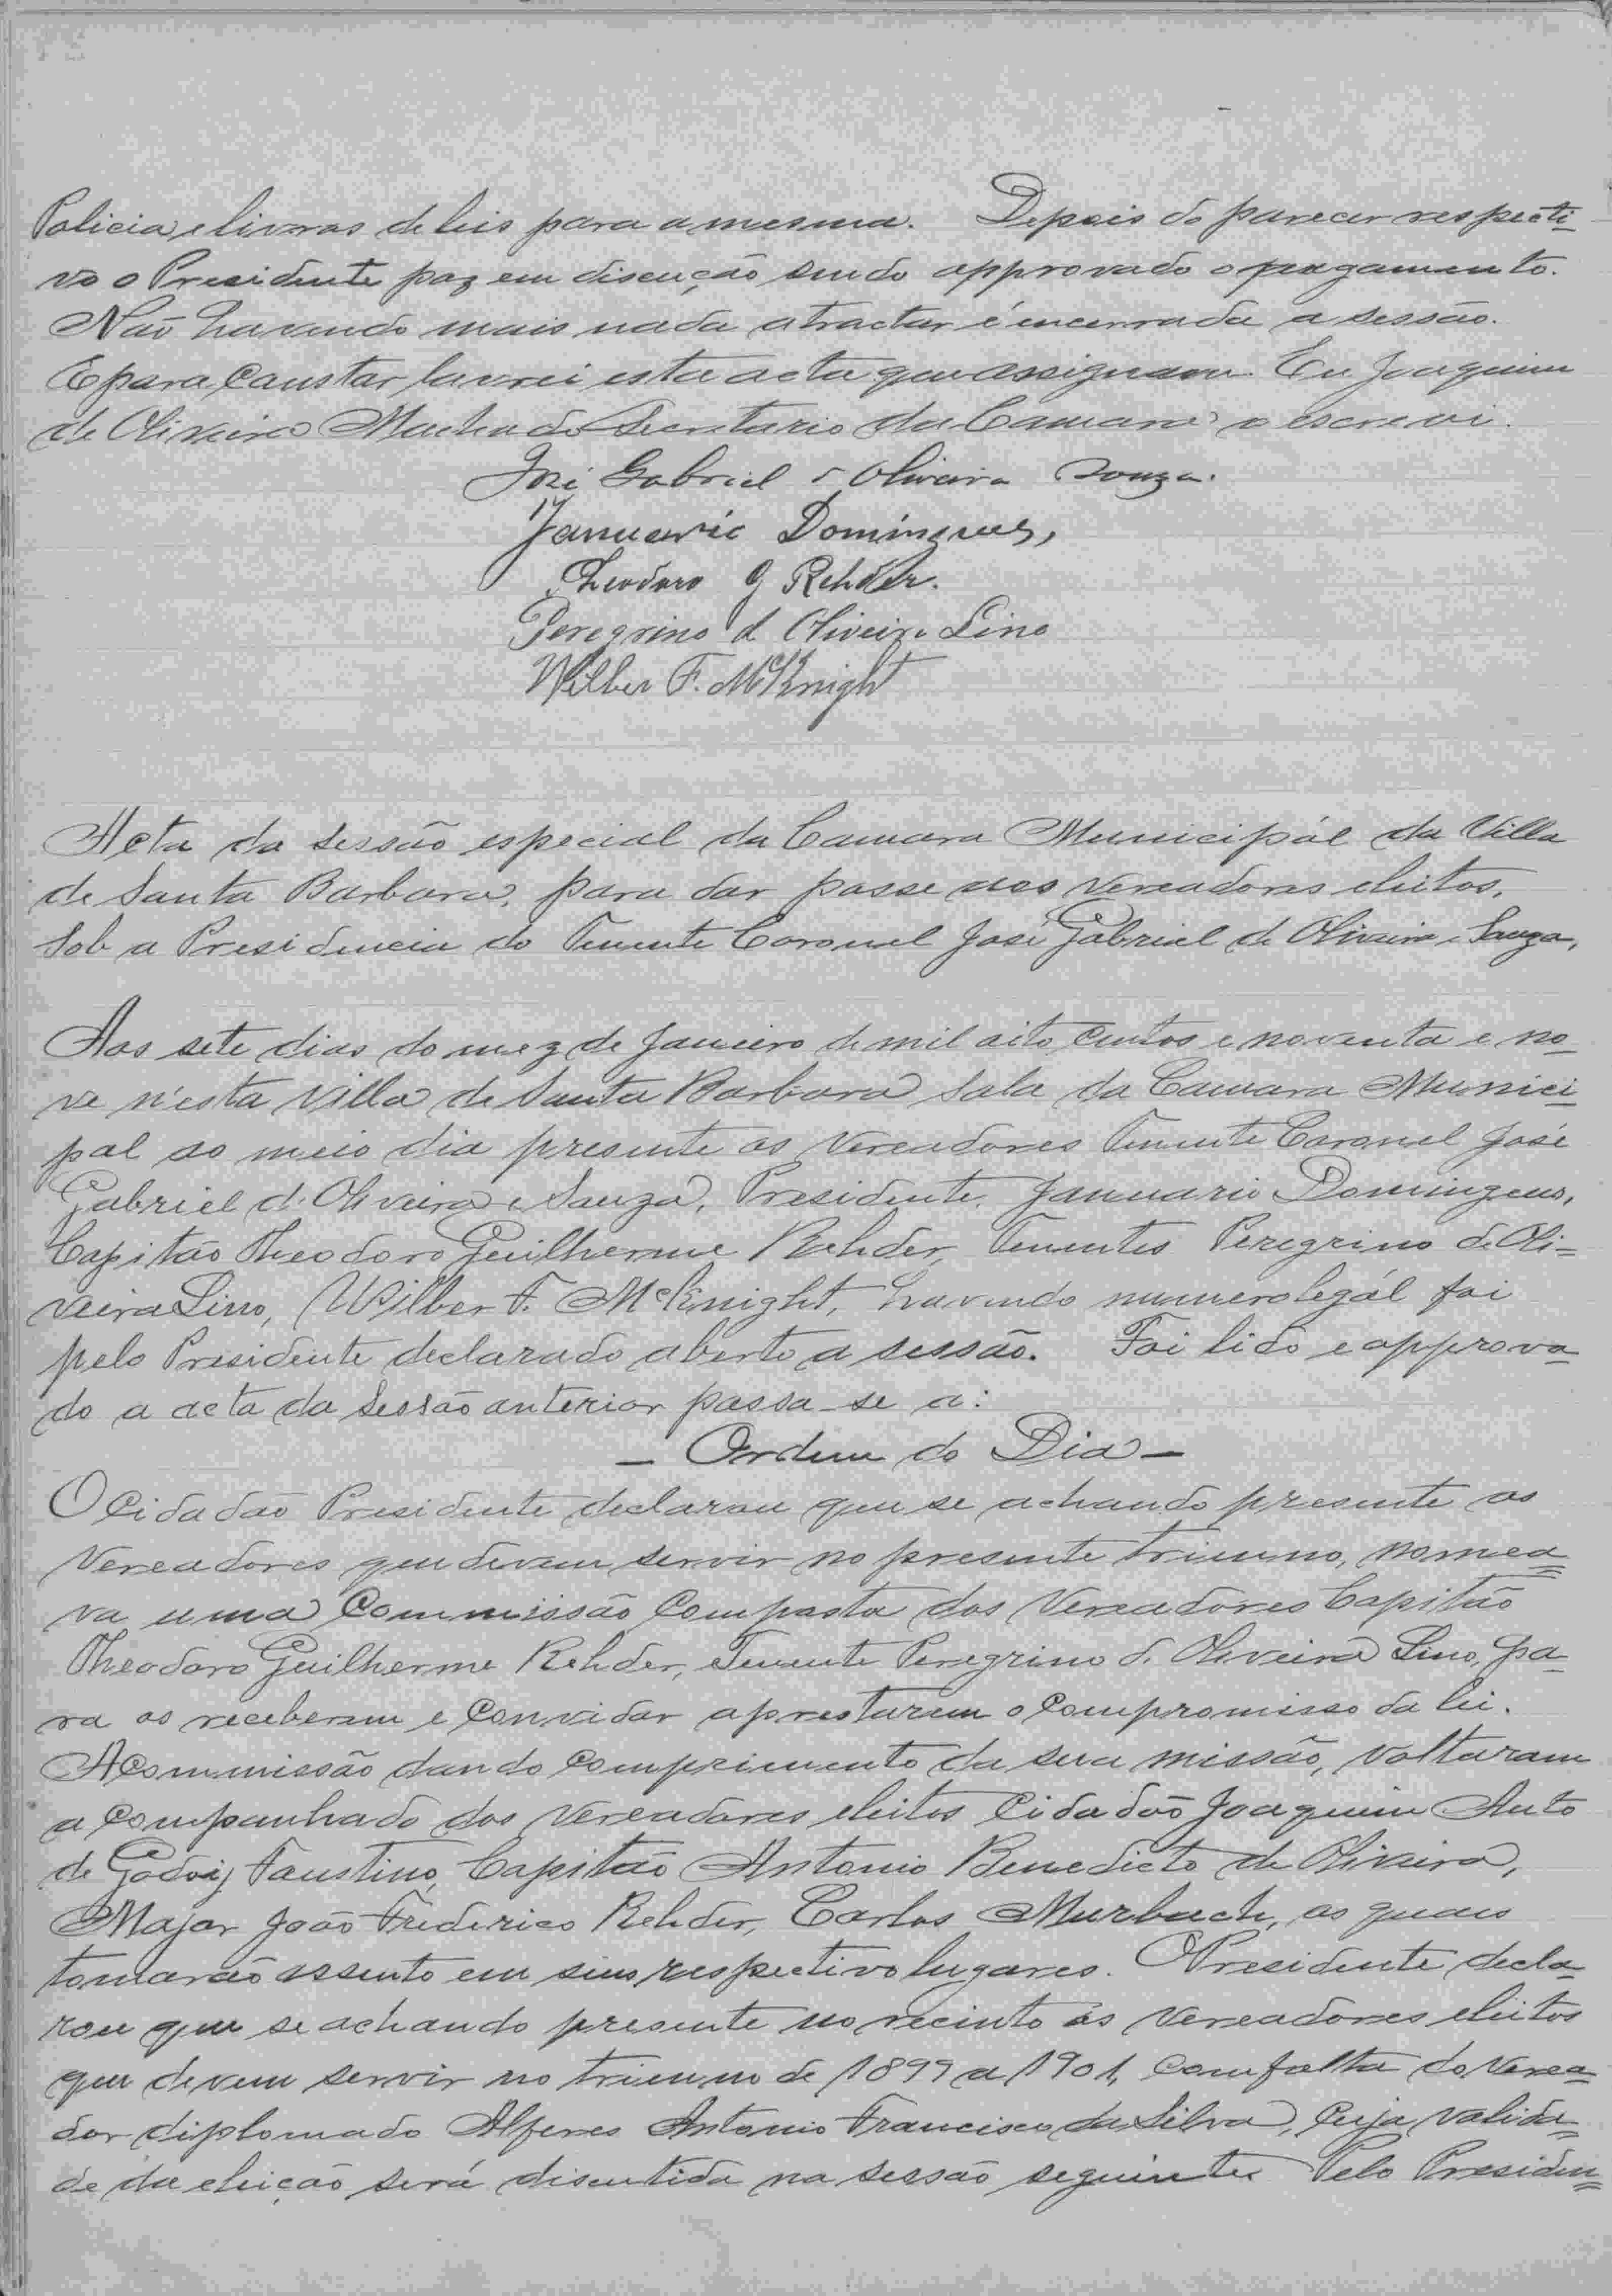 Policia e livros de leis para a mesma. Depois do parecer respecti-
vo o Presidente poz em discução sendo approvado o pagamento.
Não havendo mais nada a tractar é encerrada a sessão.
E para constar, lavrei esta acta que assignam. Eu Joaquim
de Oliveira Machado Secretario da Camara o escrevi.
José Gabriel d Oliveira Souza.
Januario Domingues,
Theodoro G Rehder.
Peregrino d Oliveira Lino
Wilber F. McKnight
Acta da sessão especial da Camara Municipál da Villa
de Santa Barbara, para dar posse aos Vereadores eleitos,
sob a Presidencia do Tenente Coronel José Gabriel de Oliveira e Souza,
Aos sete dias do mez de Janeiro de mil oito centos e noventa e no-
ve n'esta Villa de Santa Barbara Sala da Camara Munici-
pal ao meio dia presente os Vereadores Tenente Coronel José
Gabriel d'Oliveira e Souza, Presidente, Januario Domingues,
Capitão Theodoro Guilherme Rehder, Tenentes Peregrino de Oli=
veira Lino, Wilber F. McKnight, havendo numero legál foi
pelo Presidente declarado aberto a sessão. Foi lido e approva-
do a acta da Sessão anterior passa-se a:
- Ordem do Dia -
O Cidadão Presidente declarou que se achando presente os
Vereadores que devem servir no presente triennio, nomea=
va uma Commissão composta dos Vereadores Capitão
Theodoro Guilherme Rehder, Tenente Peregrino d. Oliveira Lino, pa-
ra os receberem e convidar aprestarem o compromisso da lei.
A Commissão dando comprimento da sua missão, voltaram
a companhado dos Vereadores eleitos Cidadão Joaquim Auto
de Godoij Faustino, Capitão Antonio Benedicto de Oliveira,
Major João Frederico Rehder, Carlos Murbach, os quaes
tomarão assento em seus respectivo lugares. O Presidente decla-
rou que se achando presente no recinto os Vereadores eleitos
que devem servir no triennio de 1899 a 1901, com falta do Verea=
dor diplomado Alferes Antonio Francisco da Silva, cuja valida=
de da eleição será discutida na sessão seguinte. Pelo Presiden=